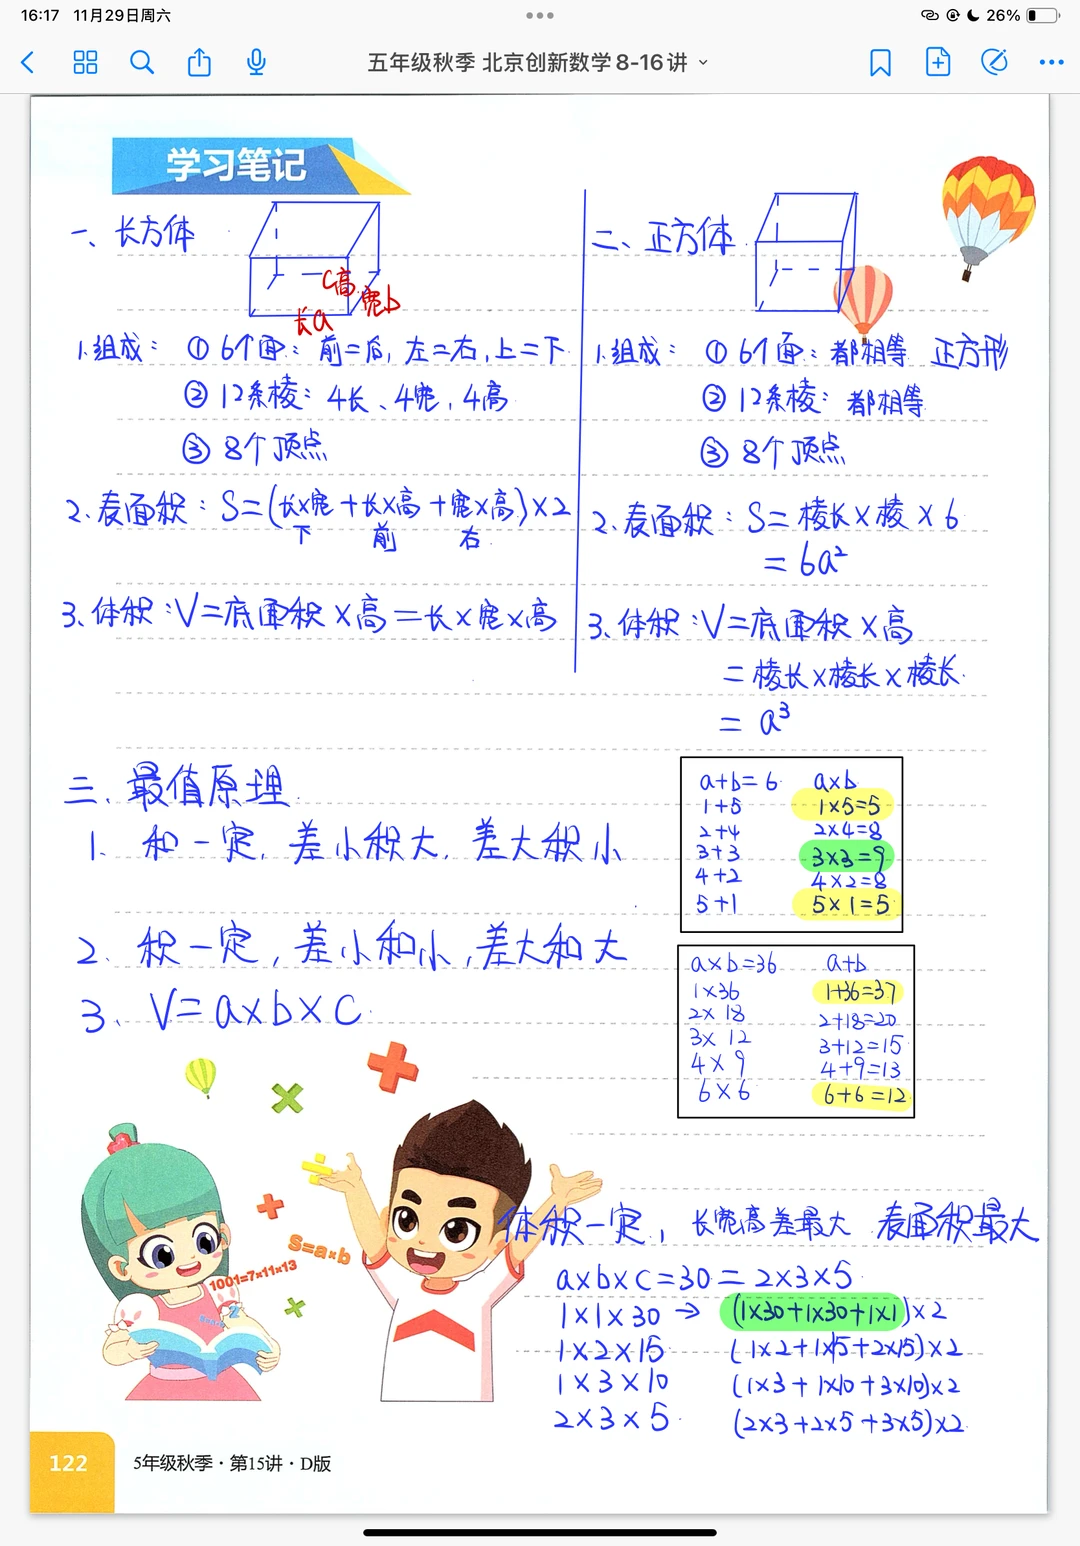 16:17 11月29日周六
26%
五年级秋季 北京创新数学8-16讲
学习笔记
一、长方体
c高
宽b
长a
1.组成：① 6个面：前=后，左=右，上=下
② 12条棱：4长、4宽，4高
③ 8个顶点
2.表面积：S=(长×宽+长×高+宽×高)×2
下 前 右
3.体积：V=底面积×高=长×宽×高
二、正方体
1.组成：① 6个面：都相等 正方形
② 12条棱：都相等
③ 8个顶点
2.表面积：S=棱长×棱×6
=6a²
3.体积：V=底面积×高
=棱长×棱长×棱长
=a³
三、最值原理
1. 和一定，差小积大，差大积小
2. 积一定，差小和小，差大和大
3、V=a×b×c
a+b=6 a×b
1+5 1×5=5
2+4 2×4=8
3+3 3×3=9
4+2 4×2=8
5+1 5×1=5
a×b=36 a+b
1×36 1+36=37
2×18 2+18=20
3×12 3+12=15
4×9 4+9=13
6×6 6+6=12
S=a×b
1001=7×11×13
体积一定，长宽高差最大 表面积最大
a×b×c=30=2×3×5
1×1×30→(1×30+1×30+1×1)×2
1×2×15 (1×2+1×15+2×15)×2
1×3×10 (1×3+1×10+3×10)×2
2×3×5 (2×3+2×5+3×5)×2
122 5年级秋季·第15讲·D版